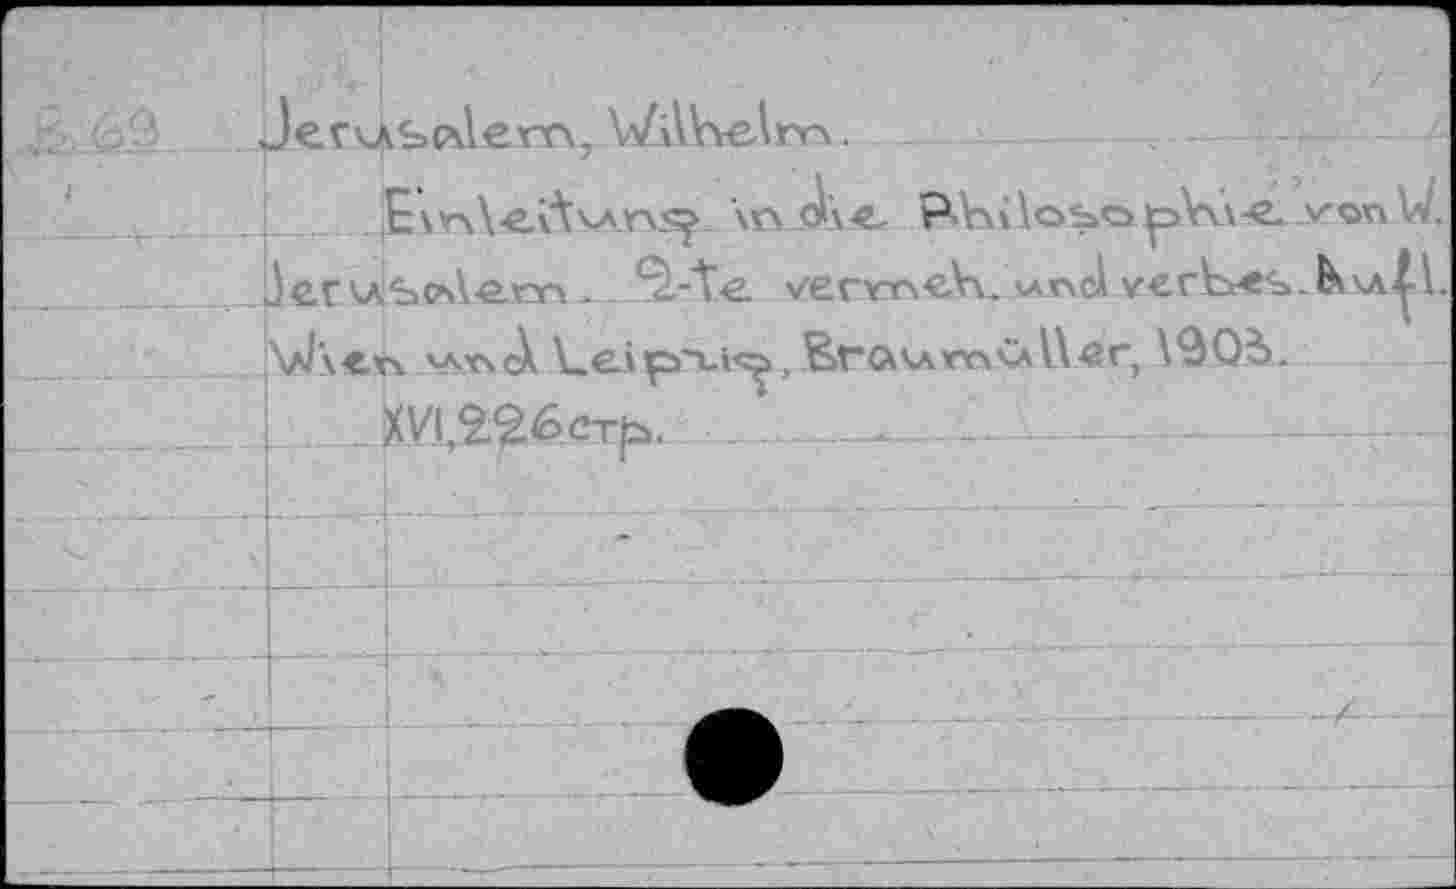 Б.69 Jerusalem, Wilhelm.
Einleitung in die Philosophie von W.
Jerusalem. 2-te vermeh. und verbes. Aufl.
Wien und Leipzig, Braumüller, 1903.
XVI, 226 стр.